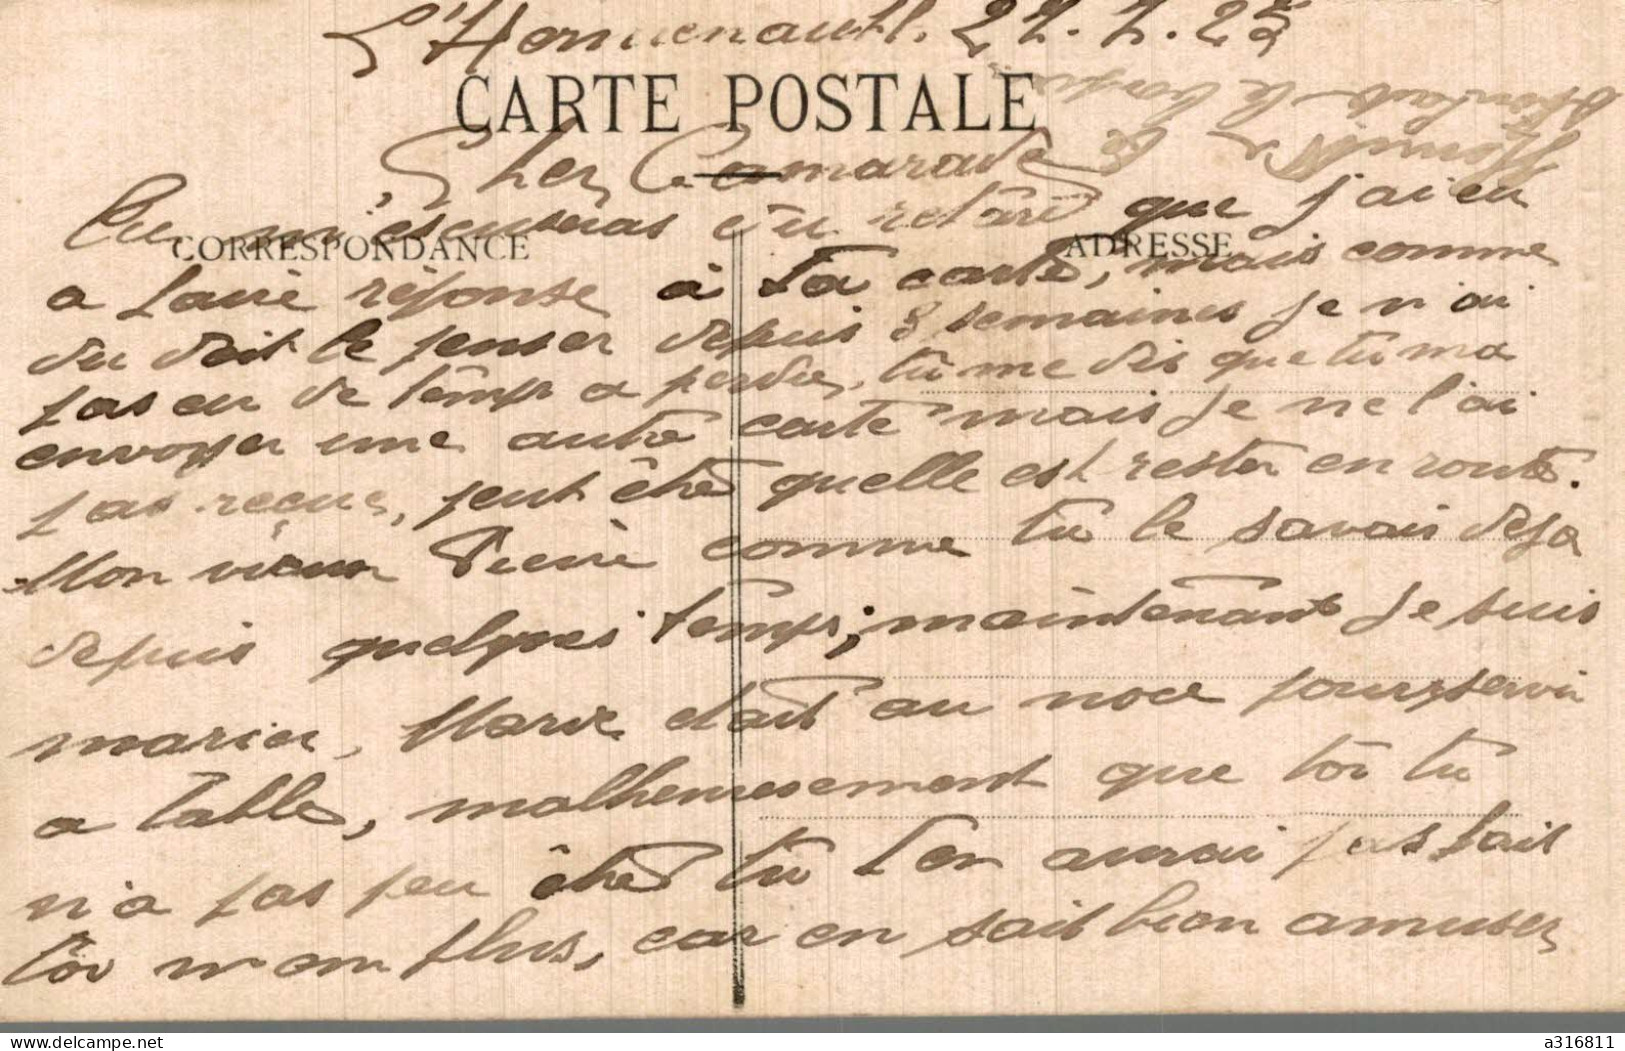 L'Hommenault. 22.7.23
CARTE POSTALE
Cher Camarade
CORRESPONDANCE
ADRESSE
Tu m'éscuseras du retard que j'ai eu
a faire réponse à ta carte, mais comme
du doit le penser depuis 8 semaines je n'ai
pas eu de temps a perdre, tu me dis que tu ma
envoyer une autre carte mais je ne l'ai
pas reçue, peut être quelle est rester en route.
Mon vieux Pierre comme tu le savais deja
depuis quelques temps; maintenant je suis
marier, Marie etait au noce pour servir
a table, malheureusement que toi tu
n'a pas peu être tu t'en aurai pas fait
toi non plus, car en sait bien amuser
delcampe.net
a316811